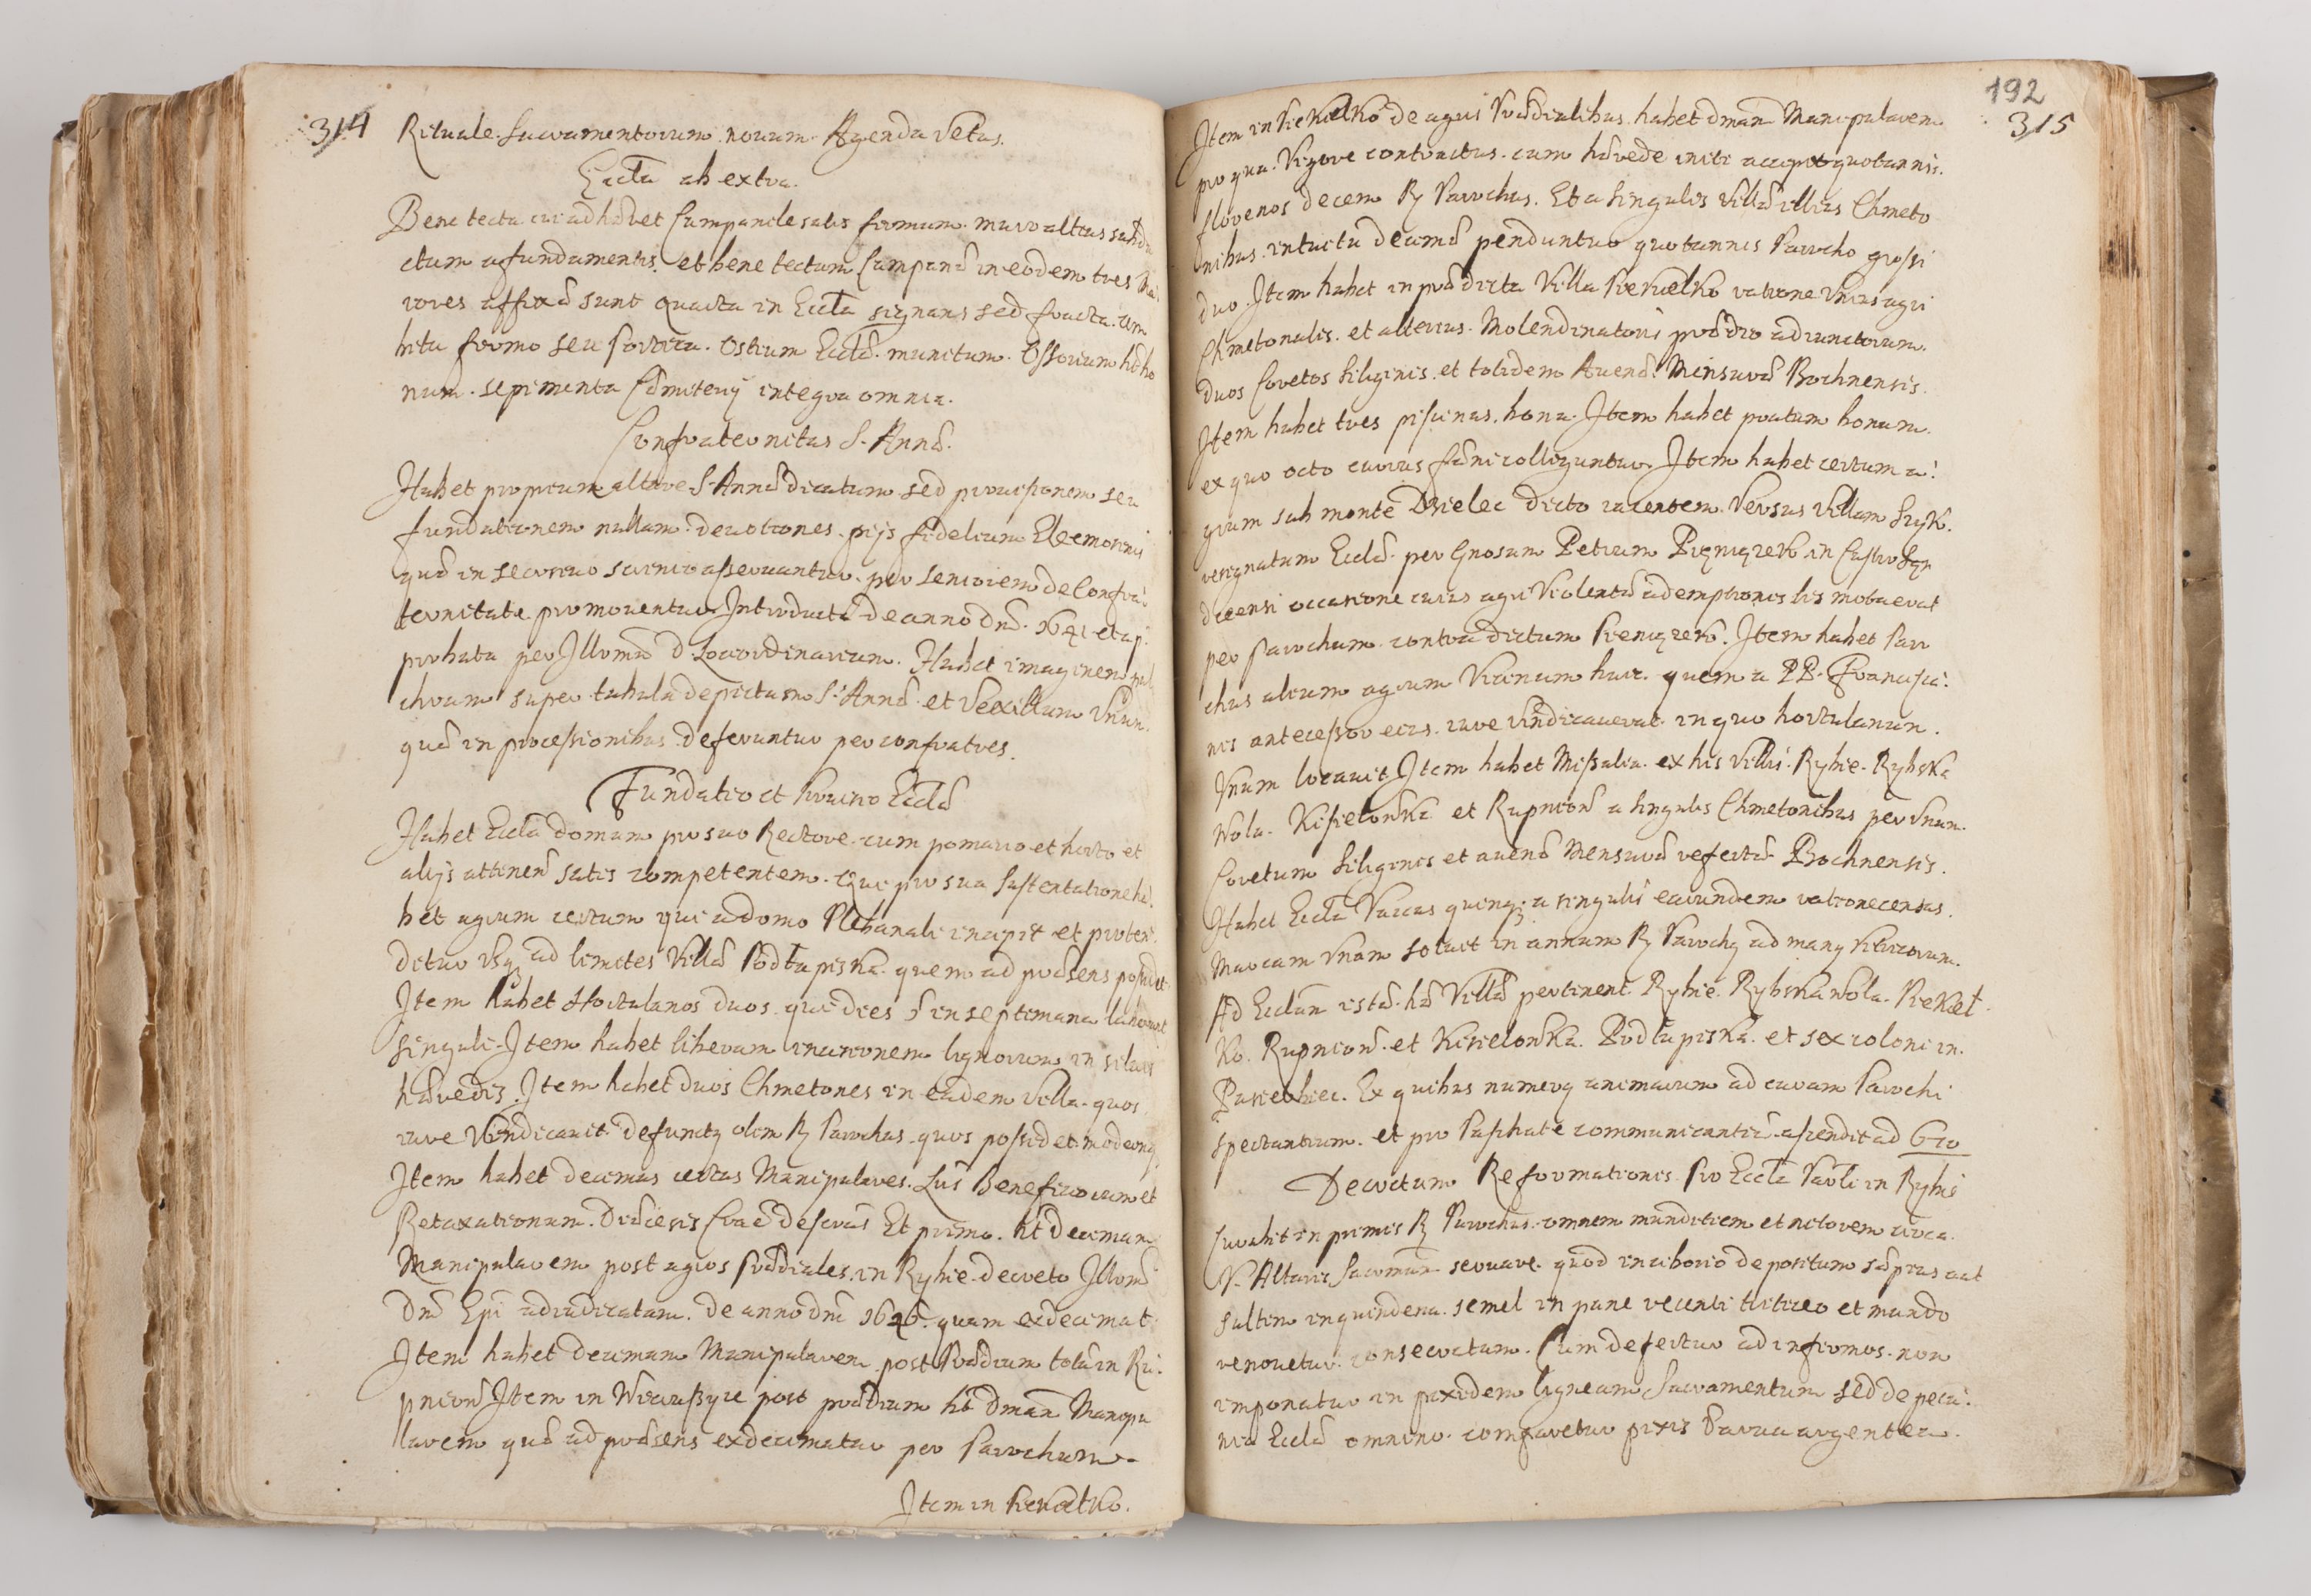 314
Rituale Sacramentorum novum. Agenda Vetus.
Eccła ab extra.
Bene tecta cui adhæret Campanile satis firmum. muro altius subdu
ctum a fundamentis. et bene tectum Campanæ in eodem tres Ma
iores affixæ sunt quarta in Eccła signans sed fracta. Am
bitu firmo seu Porticu. Ostium Eccłæ. munitum. Ossorium hꝫ bo
num. sepimenta Cæmiterij integra omnia.
Confraternitas S. Annæ.
Habet proprium altare S. Annæ dicatum sed provisionem seu
fundationem nullam. devotiones. pijs fidelium Eleemosinis
quæ in securiro scrinio asservantur. per Seniorem de Confra:
ternitate promoventur Introducta de anno dnĩ. 1641 et ap:
probata per Illrmũ D Loci ordinarium. Habet imaginem pul
chram super tabula depictam S. Annæ. et Vexillum Unum.
quæ in processionibus deferuntur per confratres.
Fundatio et Proviso Eccłæ
Habet Eccła domum pro suo Rectore. cum pomario et horto et
alijs attinen̄ satis competentem. Qui pro sua sustentatione ha:
bet agrum certum qui a domo Plebanali incipit et proten:
ditur usq ad limites Villæ Podłapiska. quem ad præsens possidet.
Item habet Hortulanos duos. qui dies 5 in septimana laborant
singuli. Item habet liberam incisionem lignorum in silvis
hæredis. Item habet duos Chmetones in eadem Villa. quos
iure Vendicavit defunctꝰ olim R Parochus. quos possidet modernꝰ
Item habet decimas certas Manipulares. Lũs Beneficiorum et
Retaxationum. Diæcesis Crac̄ descriās Et primo. ht Decimam
Manipularem post agros Prædiales. in Rybie decreto Illrmi
Dnĩ Epĩ adiudicatam. de anno dnĩ 1646. quam exdecimat.
Item habet decimam Manipularem post Prædium totũ in Ru:
pniow̄ Item in Wieruszyce post prædium hꝫ dmam̄ Manipu
larem quæ ad præsens exdecimatur per Parochum.
Item in Piekiełko.
192
315
Item in Piekiełko de agris Prædialibus. habet dmam̄ Manipularem
pro qua. Vigore contractus. cum hærede initi accipit quotannis.
florenos decem R Parochus. Et a singulis Villæ illius Chmeto
nibus. intuitu decimæ penduntur quotannis Parocho grossi
duo. Item habet in prædicta Villa Piekiełko ratione Unius agri
Chmetonalis. et alterius. Molendinatorii prædio adiunctorum.
duos Coretos siliginis. et totidem Avenæ. Mensuræ Bochnensis.
Item habet tres piscinas. bona. Item habet pratum bonum.
ex quo octo currus fæni colliguntur. Item habet certum a:
grum sub monte Dzielec dicto iacentem. Versus Villam Szyk.
resignatum Eccłæ. per Gnosum Petrum Pieniązek in Castro San
decensi occasione cuius agri Violentæ ademptionis lis mota erat
per Parochum. contra dictum Pieniązek. Item habet Paro
chus alium agrum Vicinum huic. quem a PP. Francisca:
nis antecessor eius. iure vindicaverat. in quo hortulanum.
Unum locavit Item habet Missalia. ex his Villis. Rybie. Rybska
Wola. Kisielowka et Rupniow̄ a singulis Chmetonibus per Unum.
Coretum siliginis et avenæ Mensuræ refertæ Bochnensis.
Habet Eccła Vaccas quinqꝫ. a singulis earundem ratione census.
Marcam Unam solvit in annum R Parochꝰ ad manꝰ Vitricorum.
Ad Eccłam istã. hæ Villæ pertinent. Rybie. Rybska Wola. Piekieł
ko. Rupniow̄. et Kisielowka. Podłapiska. et sex coloni in.
Pasierbiec. Ex quibus numerꝰ animarum ad curam Parochi
spectantium. et pro Paschate communicantiũ. ascendit ad 610
Decretum Reformationis Pro Eccła Paroli in Rybie
Curabit in primis R Parochus. omnem munditiem et nitorem circa.
V. Altaris Sacrmm̄ servare. quod in ciborio depositum sæpius aut
saltim in quindena. semel in pane recenti triticeo et mundo
renovetur. consecratum. Cum defertur ad infirmos. non
imponatur in pixidem ligneam Sacramentum sed de pecu:
nia Eccłæ omnino. comparetur pixis Parva argentea.